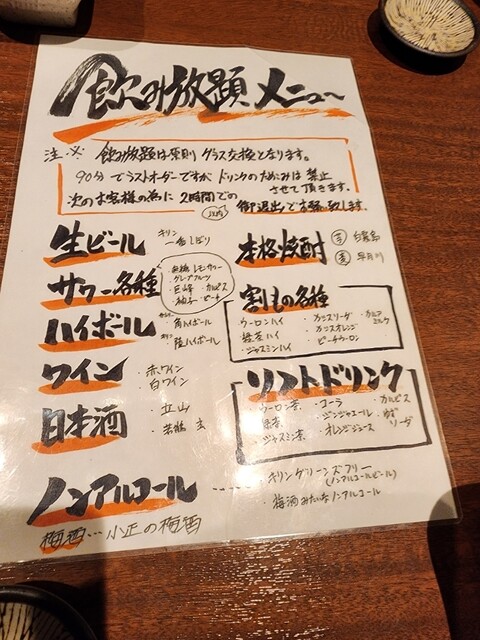 飲み放題メニュー
注※ 飲み放題は原則 グラス交換となります。
90分でラストオーダーですが ドリンクのためこみは禁止
させて頂きます。
次のお客様の為に 2時間での 御退出でお願い致します。
以内
生ビール
キリン
一番しぼり
サワー各種
レモン ・カリー
グレープフルーツ
・巨峰 ・カルピス
・柚子 ・ピーチ
ハイボール
・角ハイボール
・陸ハイボール
ワイン
・赤ワイン
・白ワイン
日本酒
・立山
ノンアルコール
・キリングリーンズフリー
(ノンアルコールビール)
・梅酒みたいなノンアルコール
梅酒…小正の梅酒
本格焼酎
芋 白霧島
麦
割もの各種
・ウーロンハイ
・緑茶ハイ
・ジャスミンハイ
・カシスソーダ
・カシスオレンジ
・ピーチウーロン
・カルア
ミルク
ソフトドリンク
・ウーロン茶
・緑茶
・ジャスミン茶
・コーラ
・ジンジャエール
・オレンジジュース
・カルピス
・ゆず
ソーダ